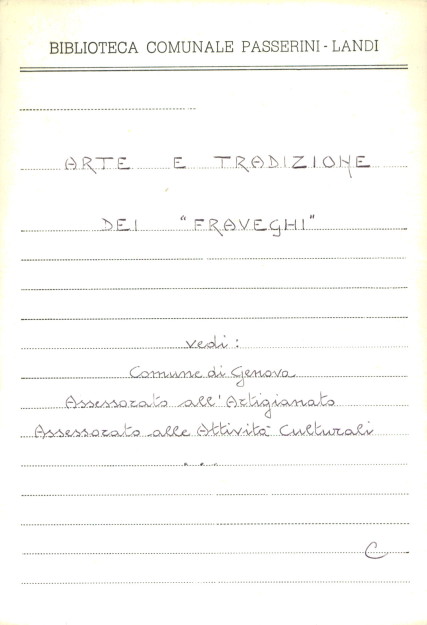 BIBLIOTECA COMUNALE PASSERINI - LANDI
ARTE E TRADIZIONE
DEI "FRAVEGHI"
vedi :
Comune di Genova
Assessorato all'Artigianato
Assessorato alle Attività Culturali
...
C